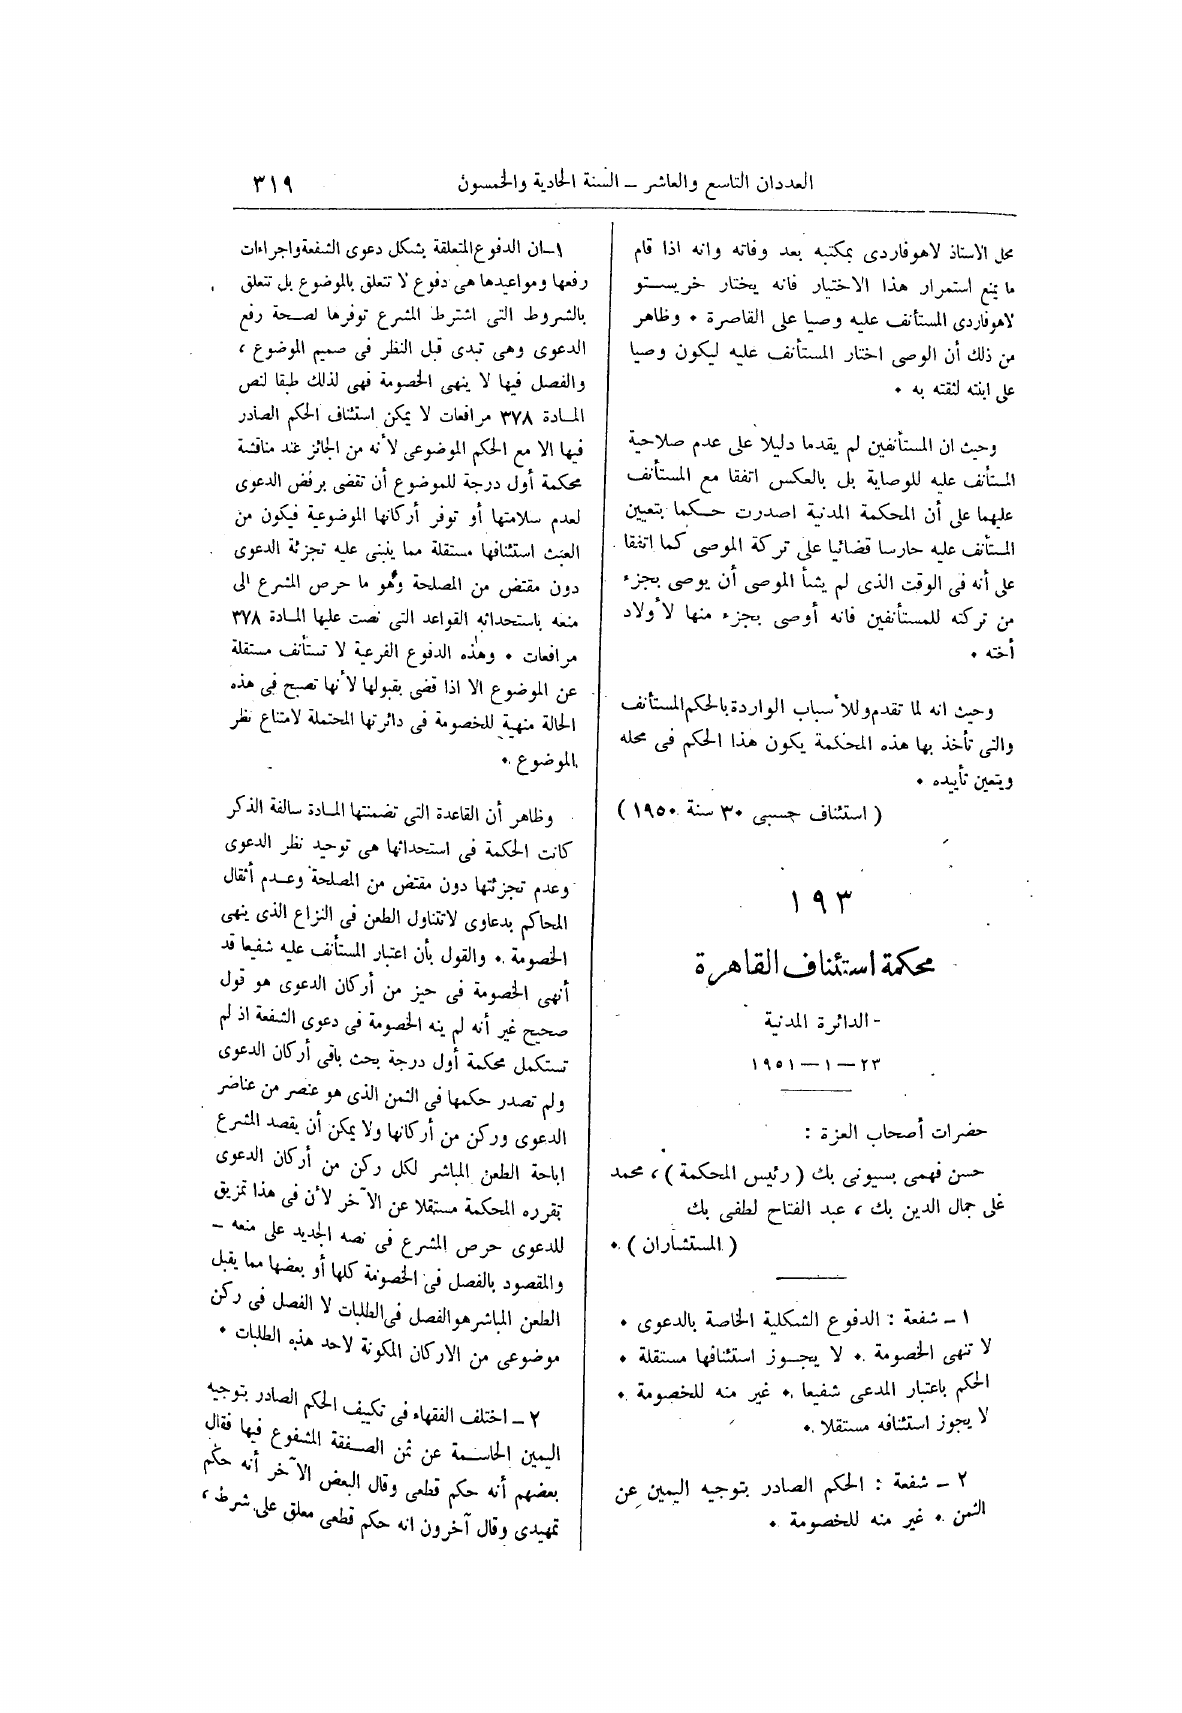 العددان التاسع والعاشر – السنة الحادية والخمسون
٣١٩
محل الاستاذ لاهوفاردى بمكتبه بعد وفاته وانه اذا قام
ما يمنع استمرار هذا الاختيار فانه يختار خريستو
لاهوفاردى المستأنف عليه وصيا على القاصرة ٠ وظاهر
من ذلك أن الوصى اختار المستأنف عليه ليكون وصيا
على ابنته لثقته به ٠
وحيث ان المستأنفين لم يقدما دليلا على عدم صلاحية
المستأنف عليه للوصاية بل بالعكس اتفقا مع المستأنف
عليهما على أن المحكمة المدنية اصدرت حكما بتعيين
المستأنف عليه حارسا قضائيا على تركة الموصى كما اتفقا
على أنه فى الوقت الذى لم يشأ الموصى أن يوصى بجزء
من تركته للمستأنفين فانه أوصى بجزء منها لأولاد
أخته ٠
وحيث انه لما تقدم وللأسباب الواردة بالحكم المستأنف
والتى تأخذ بها هذه المحكمة يكون هذا الحكم فى محله
ويتعين تأييده ٠
( استئناف حسبى ٣٠ سنة ١٩٥٠ )
١٩٣
محكمة استئناف القاهرة
الدائرة المدنية
٢٣ – ١ – ١٩٥١
حضرات أصحاب العزة :
حسن فهمى بسيونى بك ( رئيس المحكمة ) ، محمد
على جمال الدين بك ، عبد الفتاح لطفى بك
( المستشاران ) ٠
١ – شفعة : الدفوع الشكلية الخاصة بالدعوى ٠
لا تنهى الخصومة ٠ لا يجوز استئنافها مستقلة ٠
الحكم باعتبار المدعى شفيعا ٠ غير منه للخصومة ٠
لا يجوز استئنافه مستقلا ٠
٢ – شفعة : الحكم الصادر بتوجيه اليمين عن
الثمن ٠ غير منه للخصومة ٠
١–ان الدفوع المتعلقة بشكل دعوى الشفعة واجراءات
رفعها ومواعيدها هى دفوع لا تتعلق بالموضوع بل تتعلق
بالشروط التى اشترط المشرع توفرها لصحة رفع
الدعوى وهى تبدى قبل النظر فى صميم الموضوع ،
والفصل فيها لا ينهى الخصومة فهى لذلك طبقا لنص
المادة ٣٧٨ مرافعات لا يمكن استئناف الحكم الصادر
فيها الا مع الحكم الموضوعى لأنه من الجائز عند مناقشة
محكمة أول درجة للموضوع أن تقضى برفض الدعوى
لعدم سلامتها أو توفر أركانها الموضوعية فيكون من
العبث استئنافها مستقلة مما ينبنى عليه تجزئة الدعوى
دون مقتض من المصلحة وهو ما حرص المشرع الى
منعه باستحداثه القواعد التى نصت عليها المادة ٣٧٨
مرافعات ٠ وهذه الدفوع الفرعية لا تستأنف مستقلة
عن الموضوع الا اذا قضى بقبولها لأنها تصبح فى هذه
الحالة منهية للخصومة فى دائرتها المحتملة لامتناع نظر
الموضوع ٠
وظاهر أن القاعدة التى تضمنتها المادة سالفة الذكر
كانت الحكمة فى استحداثها هى توحيد نظر الدعوى
وعدم تجزئتها دون مقتض من المصلحة وعدم أثقال
المحاكم بدعاوى لا تتناول الطعن فى النزاع الذى ينهى
الخصومة ٠ والقول بأن اعتبار المستأنف عليه شفيعا قد
أنهى الخصومة فى حيز من أركان الدعوى هو قول
صحيح غير أنه لم ينه الخصومة فى دعوى الشفعة اذ لم
تستكمل محكمة أول درجة بحث باقى أركان الدعوى
ولم تصدر حكمها فى الثمن الذى هو عنصر من عناصر
الدعوى وركن من أركانها ولا يمكن أن يقصد المشرع
اباحة الطعن المباشر لكل ركن من أركان الدعوى
تقرره المحكمة مستقلا عن الآخر لأن فى هذا تمزيق
للدعوى حرص المشرع فى نصه الجديد على منعه –
والمقصود بالفصل فى الخصومة كلها أو بعضها مما يقبل
الطعن المباشر هو الفصل فى الطلبات لا الفصل فى ركن
موضوعى من الاركان المكونة لاحد هذه الطلبات ٠
٢ – اختلف الفقهاء فى تكييف الحكم الصادر بتوجيه
اليمين الحاسمة عن ثمن الصفقة المشفوع فيها فقال
بعضهم أنه حكم قطعى وقال البعض الآخر أنه حكم
تمهيدى وقال آخرون انه حكم قطعى معلق على شرط ،